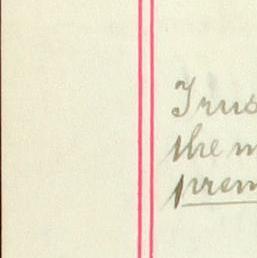 Trus
the m
prem